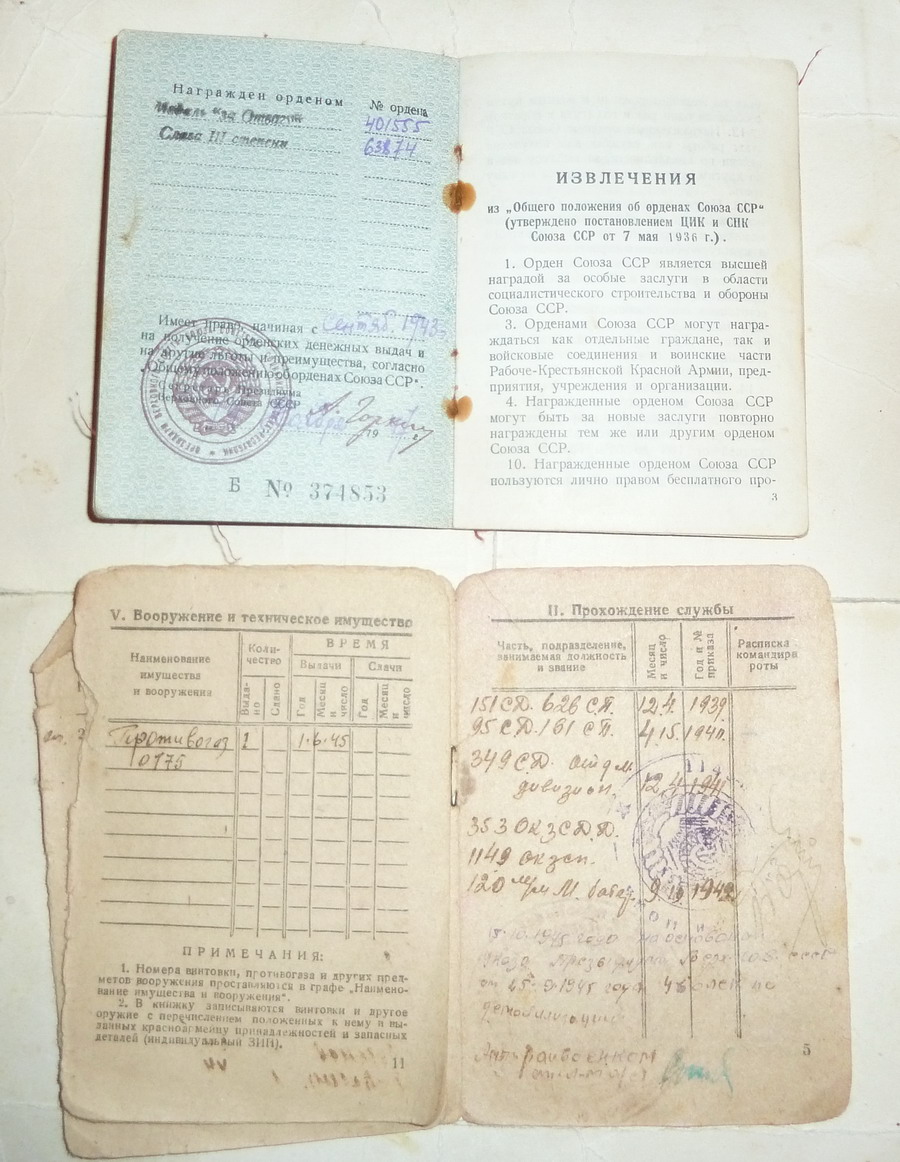 Награжден орденом
№ ордена
Медаль "за Отвагу"
401555
Слава III степени
63874
Имеет право, начиная с Сентяб. 1943 г.
на получение орденских денежных выдач и
на другие льготы и преимущества, согласно
„Общему положению об орденах Союза ССР".
Секретарь Президиума
Верховного Совета СССР
А. Горкин
19
Б № 374853
ИЗВЛЕЧЕНИЯ
из „Общего положения об орденах Союза ССР"
(утверждено постановлением ЦИК и СНК
Союза ССР от 7 мая 1936 г.).
1. Орден Союза ССР является высшей
наградой за особые заслуги в области
социалистического строительства и обороны
Союза ССР.
3. Орденами Союза ССР могут награ-
ждаться как отдельные граждане, так и
войсковые соединения и воинские части
Рабоче-Крестьянской Красной Армии, пред-
приятия, учреждения и организации.
4. Награжденные орденом Союза ССР
могут быть за новые заслуги повторно
награждены тем же или другим орденом
Союза ССР.
10. Награжденные орденом Союза ССР
пользуются лично правом бесплатного про-
3
V. Вооружение и техническое имущество
Наименование
имущества
и вооружения
Коли-
чество
Выда-
но
Сдано
ВРЕМЯ
Выдачи
Сдачи
Год
Месяц
и
число
Год
Месяц
и
число
Противогоз 1 1·6·45
0175
ПРИМЕЧАНИЯ:
1. Номера винтовки, противогаза и других пред-
метов вооружения проставляются в графе „Наимено-
вание имущества и вооружения".
2. В книжку записываются винтовки и другое
оружие с перечислением положенных к нему и вы-
данных красноармейцу принадлежностей и запасных
деталей (индивидуальный ЗИП).
11
II. Прохождение службы
Часть, подразделение,
занимаемая должность
и звание
Месяц
и число
Год и №
приказа
Расписка
командира
роты
151 СД. 626 С.П. 12.4. 1939.
95 СД. 161 СП. 4.15. 1940.
349 СД.
дивизион. 12.4 1941
353 ОКЗСДД.
1149 окзсп.
120 м/м М. батар. 9.10
18·10·1945 года на основании
Указа Президиума Верх. Сов. СССР
от 25·9·1945 года уволен по
демобилизации
Райвоенком
5